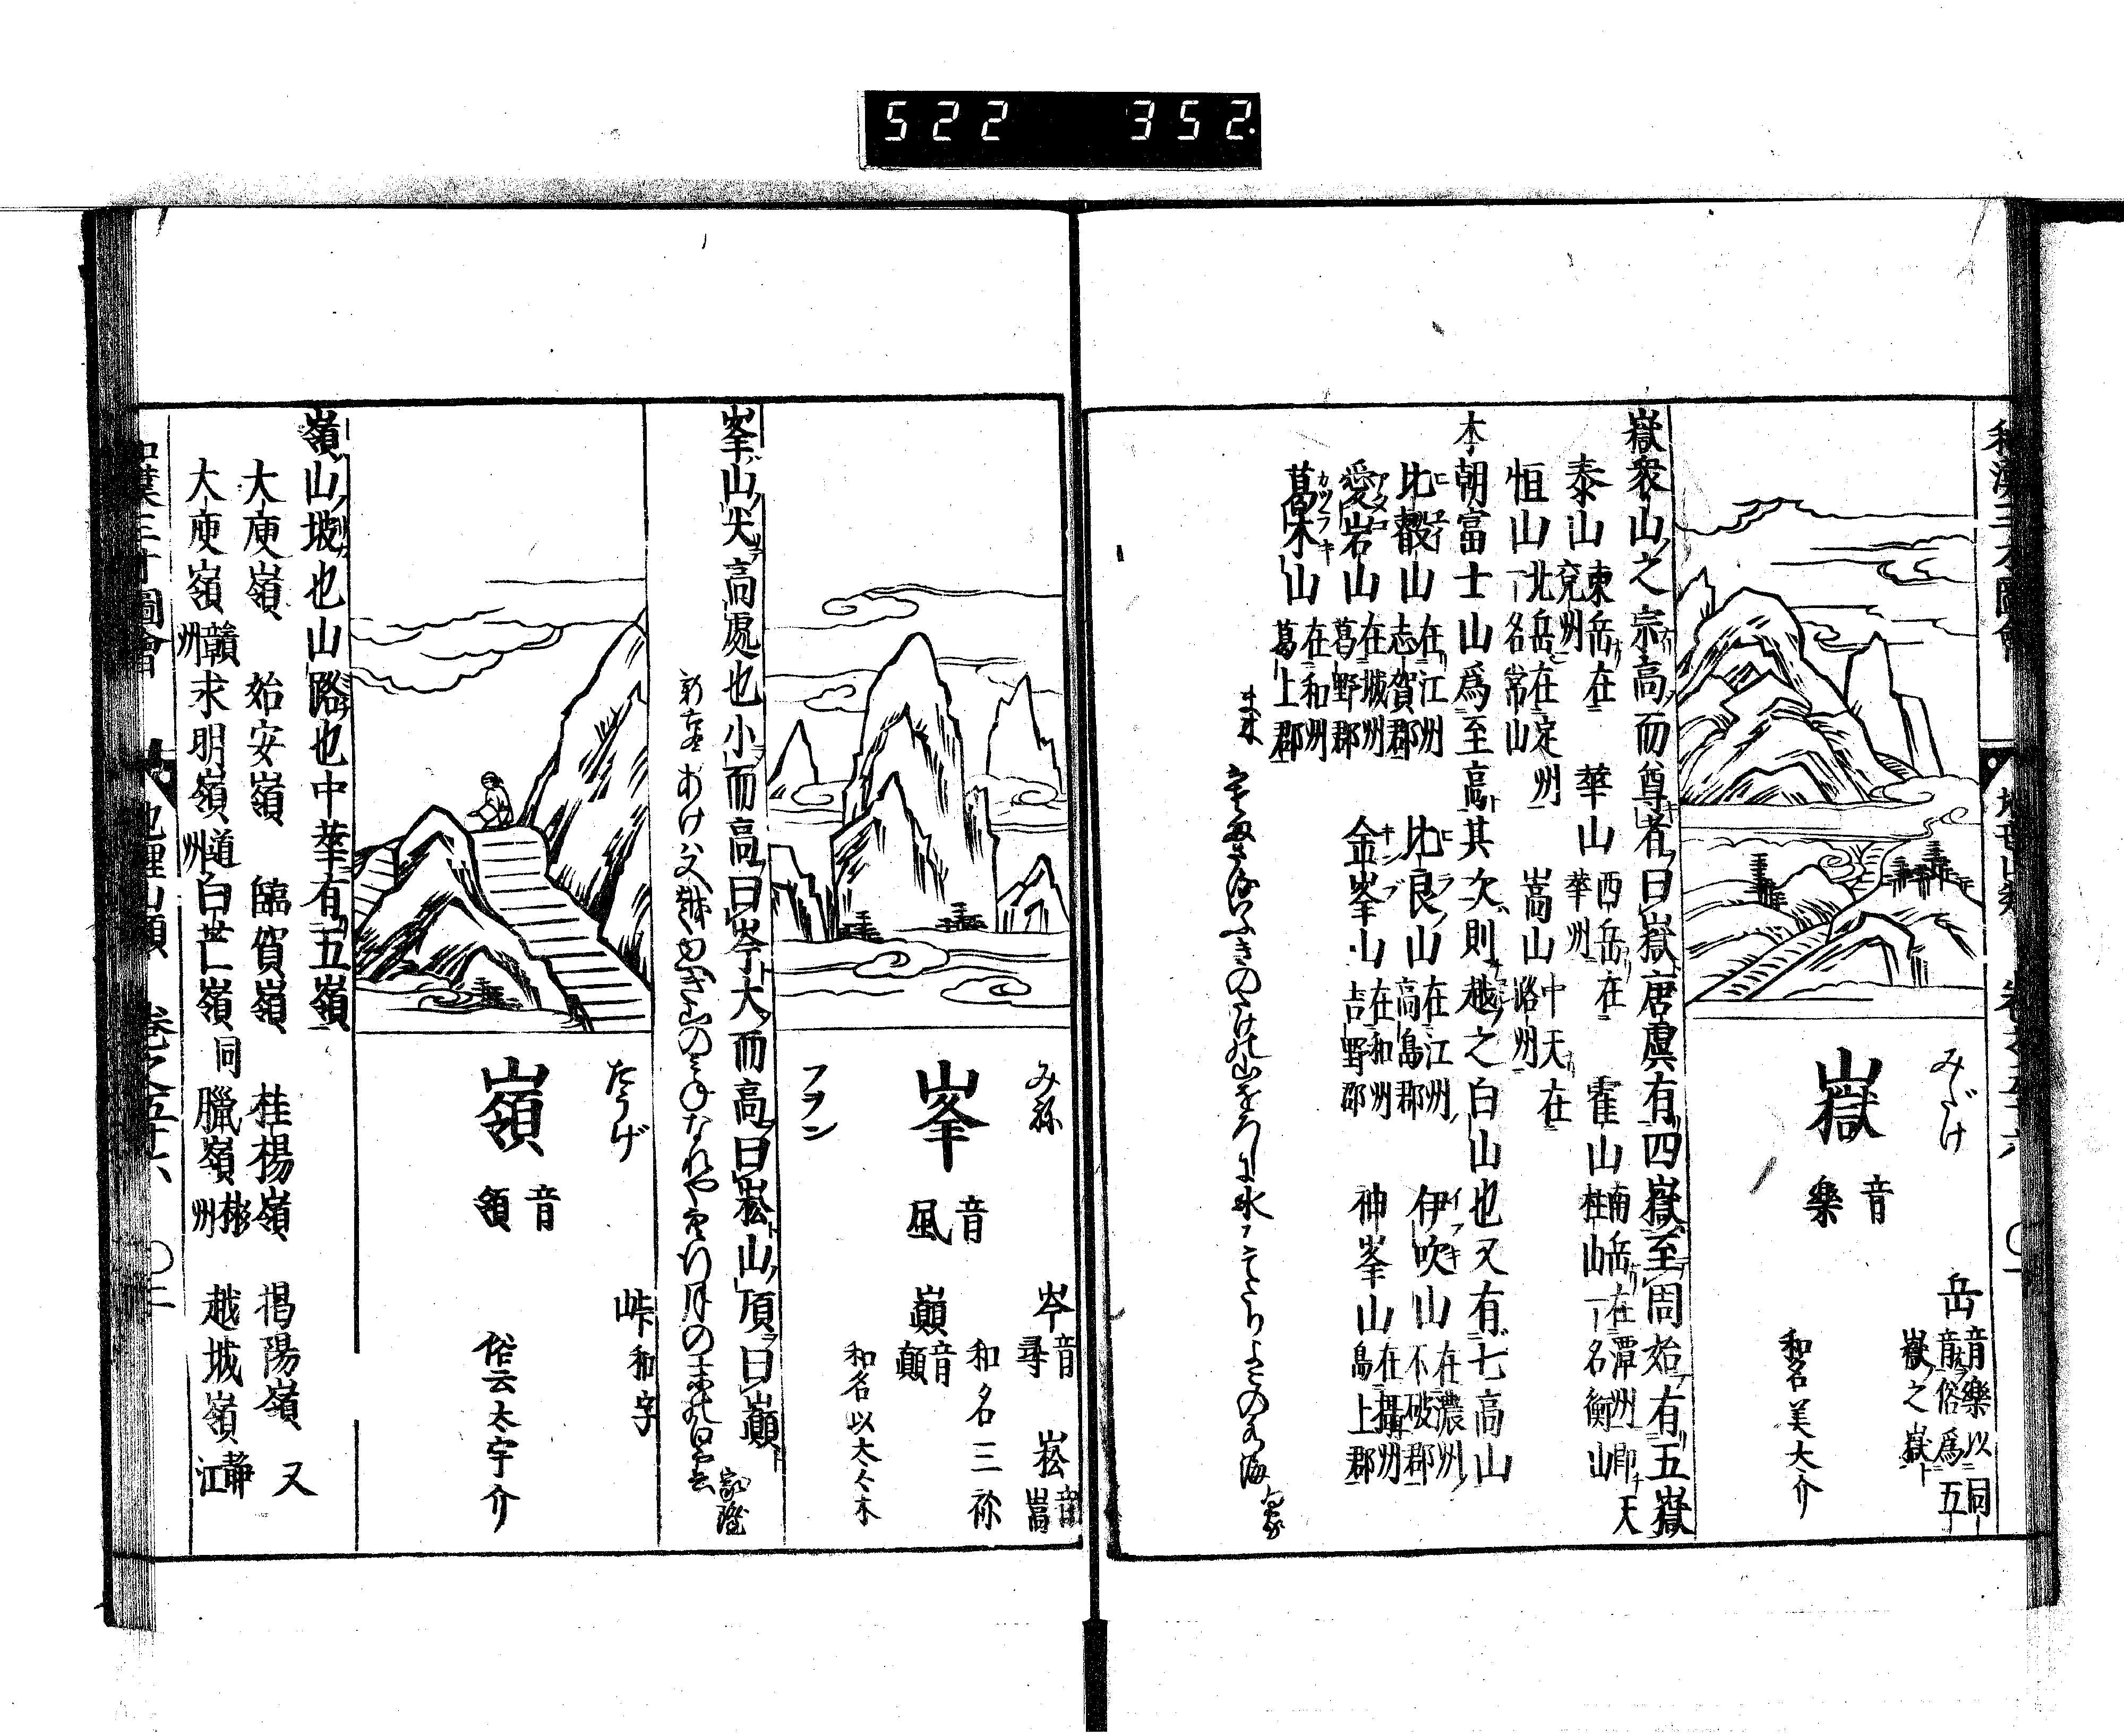 522 352.
みだけ
嶽
音樂
岳
音樂以同
音俗爲五
嶽之嶽
和名美大介
嶽衆山之宗高而尊者曰嶽唐虞有四嶽至周始有五嶽
泰山 東岳在兗州 華山 西岳在華州 霍山 南岳在潭州即天柱山一名衡山
恒山 北岳在定州一名常山 嵩山 中天在洛州
本朝富士山爲至高其次則越之白山也又有七高山
比叡山 在江州志賀郡 比良山 在江州高島郡 伊吹山 在濃州不破郡
愛宕山 在城州葛野郡 金峯山 在和州吉野郡 神峯山 在攝州島上郡
葛木山 在和州葛上郡
みね
峯
音風
フヲン
岑 音尋 崧 音嵩
和名三祢
巓 音顛
和名以太々木
峯山尖高處也小而高曰岑大而高曰崧山頂曰巓
家隆
たうげ
嶺
音領
峠 和字
俗云太宇介
嶺山坡也山路也中華有五嶺
大庾嶺 始安嶺 臨賀嶺 桂楊嶺 揭陽嶺 又
大庾嶺 贛州 求明嶺 道州 白芒嶺 同 臘嶺 彬州 越城嶺 靜江